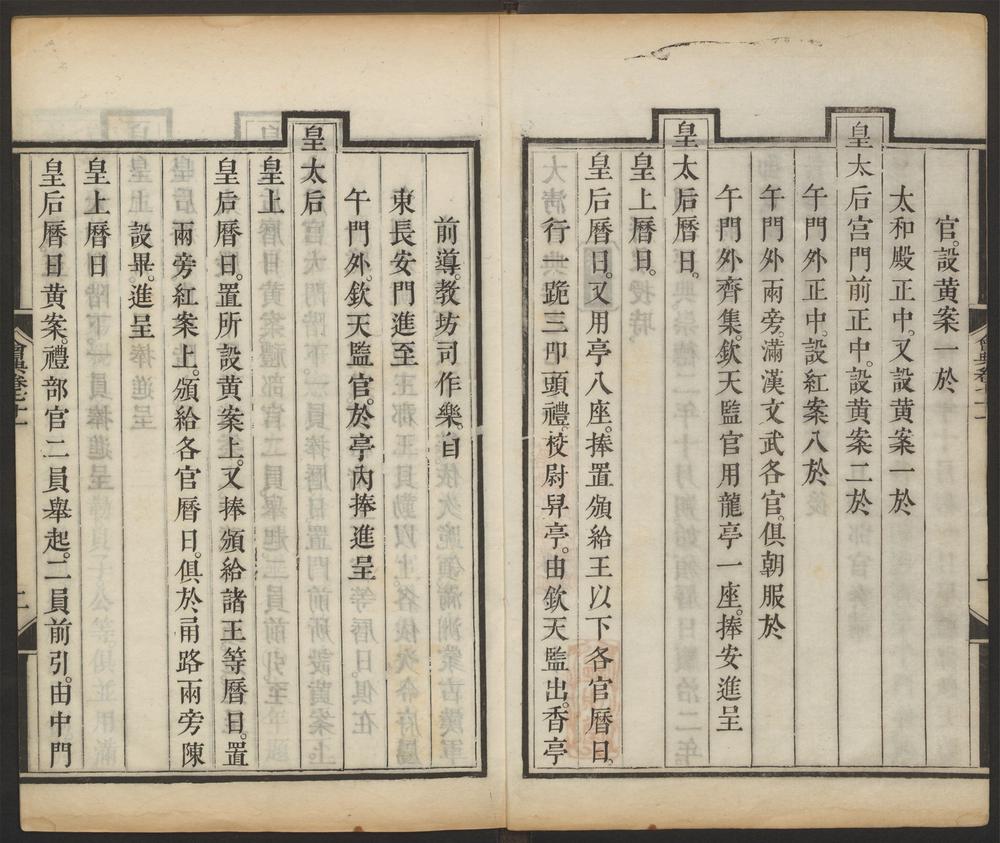 官。設黄案一於
太和殿正中。又設黄案一於
皇太后宫門前正中。設黄案二於
午門外正中。設紅案八於
午門外兩旁。滿漢文武各官。俱朝服於
午門外齊集。欽天監官用龍亭一座。捧安進呈
皇太后曆日。
皇上曆日。
皇后曆日。又用亭八座。捧置頒給王以下各官曆日。
行一跪三叩頭禮。校尉舁亭。由欽天監出。香亭
前導。教坊司作樂。自
東長安門進至
午門外。欽天監官。於亭內捧進呈
皇太后
皇上
皇后曆日。置所設黄案上。又捧頒給諸王等曆日。置
兩旁紅案上。頒給各官曆日。俱於甬路兩旁陳
設畢。進呈
皇上曆日
皇后曆日黄案。禮部官二員舉起。二員前引。由中門